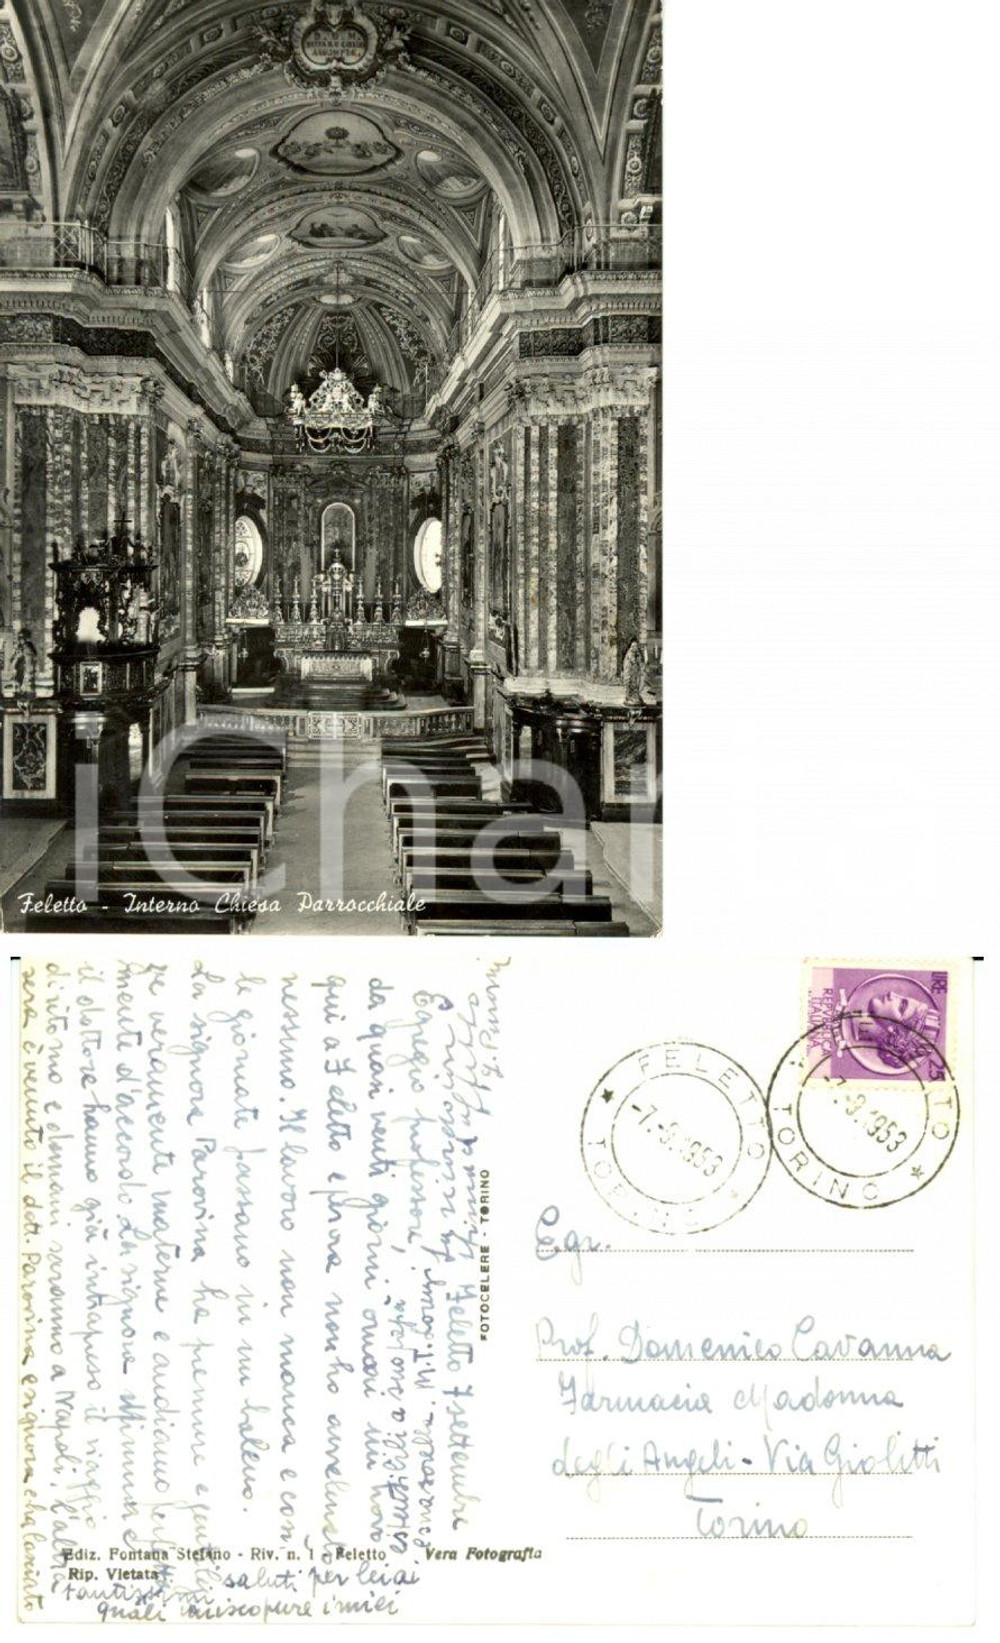 D. O. M.
Feletto - Interno Chiesa Parrocchiale
iChar
Feletto 7 settembre
Egregio professore,
da quasi venti giorni ormai mi trovo
qui a Feletto e finora non ho avvelenato
nessuno. Il lavoro non manca e con
le giornate passano in un baleno.
La signora Parovina ha premure e gentilezze
veramente materne e andiamo perfettamente
d'accordo. La signora Mimma e
il dottore hanno già intrapreso il viaggio
di ritorno e domani saranno a Napoli; l'altra
sera è venuto il dott. Parovina e signora e ha lasciato
tantissimi saluti per lei ai
quali unisco pure i miei
FOTOCELERE - TORINO
Ediz. Fontana Stefano - Riv. n. 1 - Feletto
Vera Fotografia
Rip. Vietata
LIRE 25
REPUBBLICA ITALIANA
FELETTO
TORINO
-7.-9.1953
FELETTO
TORINO
-7.-9.1953
Egr.
Prof. Domenico Cavanna
Farmacia Madonna
degli Angeli - Via Giolitti
Torino